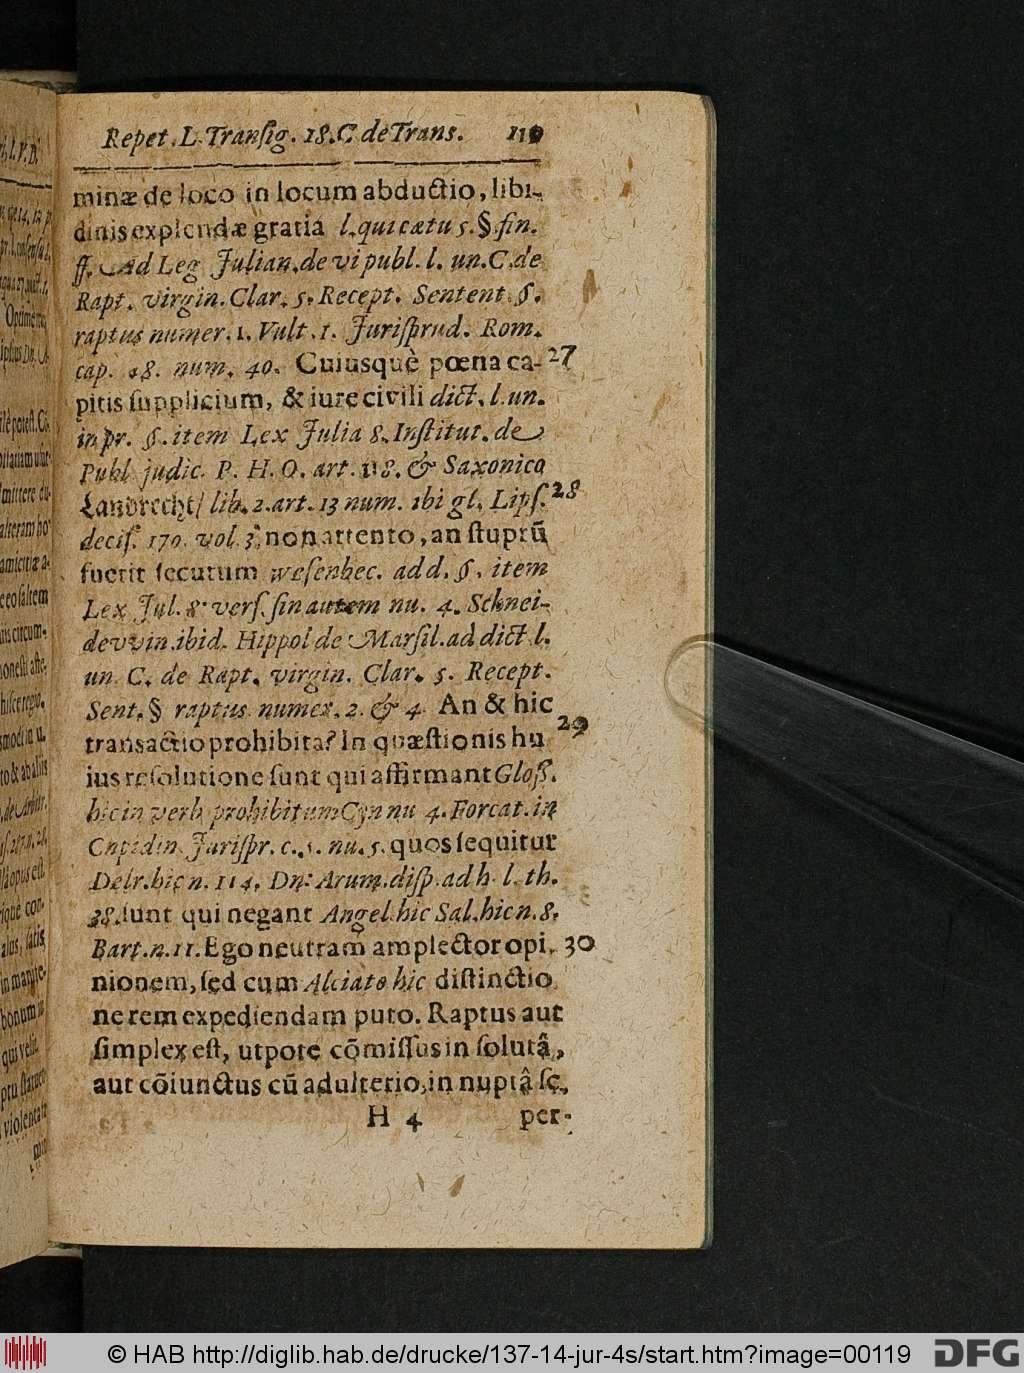 Repet. L. Transig. 18. C de Trans. 119
minæ de loco in locum abductio, libi-
dinis explendæ gratia l. qui cætu 5. § fin.
ff. Ad Leg Julian. de vi publ. l. un. C. de
Rapt. virgin. Clar. 5. Recept. Sentent. §.
raptus numer. 1. Vult. 1. Jurisprud. Rom.
cap. 18. num. 40. Cuiusquè pœna ca- 27
pitis supplicium, & iure civili dict. l. un.
in pr. §. item Lex Julia 8. Institut. de
Publ judic. P. H. O. art. 118. & Saxonico
Landrecht/ lib. 2. art. 13 num. ibi gl. Lips. 28
decis. 170. vol. 3. non attento, an stuprũ
fuerit secutum wesenbec. add. §. item
Lex Jul. 8. vers. sin autem nu. 4. Schnei-
devvin. ibid. Hippol de Marsil. ad dict l.
un C. de Rapt. virgin. Clar. 5. Recept.
Sent. § raptus numer. 2. & 4. An & hic
transactio prohibita? In quæstionis hu 29
ius resolutione sunt qui affirmant Gloss.
hic in verb prohibitum Cyn nu 4. Forcat. in
Cupidin. Jurispr. c. nu. 5. quos sequitur
Delr. hic n. 114. Dn: Arum. disp. ad h. l. th.
38. sunt qui negant Angel hic Sal. hic n. 8.
Bart. n. 11. Ego neutram amplector opi 30
nionem, sed cum Alciato hic distinctio
ne rem expediendam puto. Raptus aut
simplex est, utpote cõmissus in solutâ,
aut cõiunctus cũ adulterio, in nuptâ sc.
H 4 per-
mitere
amicitiæ a-
ceo saltem
circum-
bonum
qui velit
violentare
© HAB http://diglib.hab.de/drucke/137-14-jur-4s/start.htm?image=00119 DFG